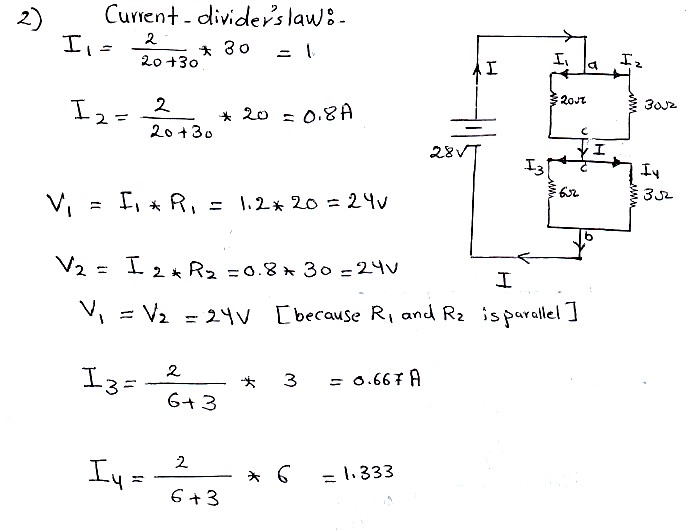 2) Current-divider's law:-
I₁ = 2/(20+30) * 30 = 1
I₂ = 2/(20+30) * 20 = 0.8A
V₁ = I₁ * R₁ = 1.2 * 20 = 24v
V₂ = I₂ * R₂ = 0.8 * 30 = 24V
V₁ = V₂ = 24V [because R₁ and R₂ is parallel]
I₃ = 2/(6+3) * 3 = 0.667A
I₄ = 2/(6+3) * 6 = 1.333
I
I₁ a I₂
20Ω 30Ω
c
28V
I
I₃ c I₄
6Ω 3Ω
b
I